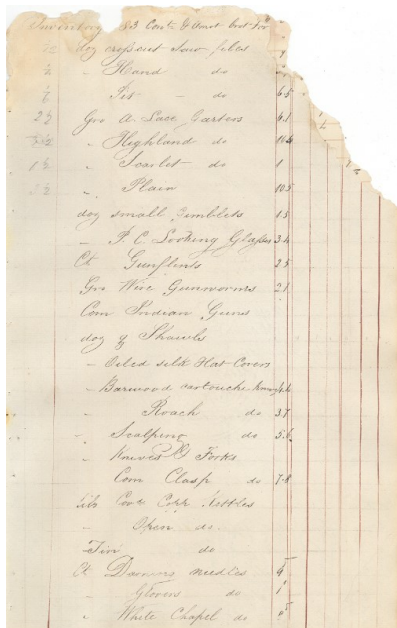 Inventory 83 Cont
doz crosscut Saw files
" Hand do
" Pit - do 65
2½ Gro A. Lace Garters 61
" Highland do
1½ " Scarlet do 1
" Plain 105
doz small Gimblets 15
- P.C. Looking Glasses 34
Ct Gunflints 25
Gro Wire Gunworms 21
Com Indian Guns
doz Shawls
- Oiled silk Hat Covers
- Barwood cartouche knives
" Roach do 37
- Scalping do 56
- Knives & Forks
Com Clasp do 78
lib Cov Copr Kettles
" Open do.
- Tin do
Ct Darning needles
" Glovers do
" White Chapel do